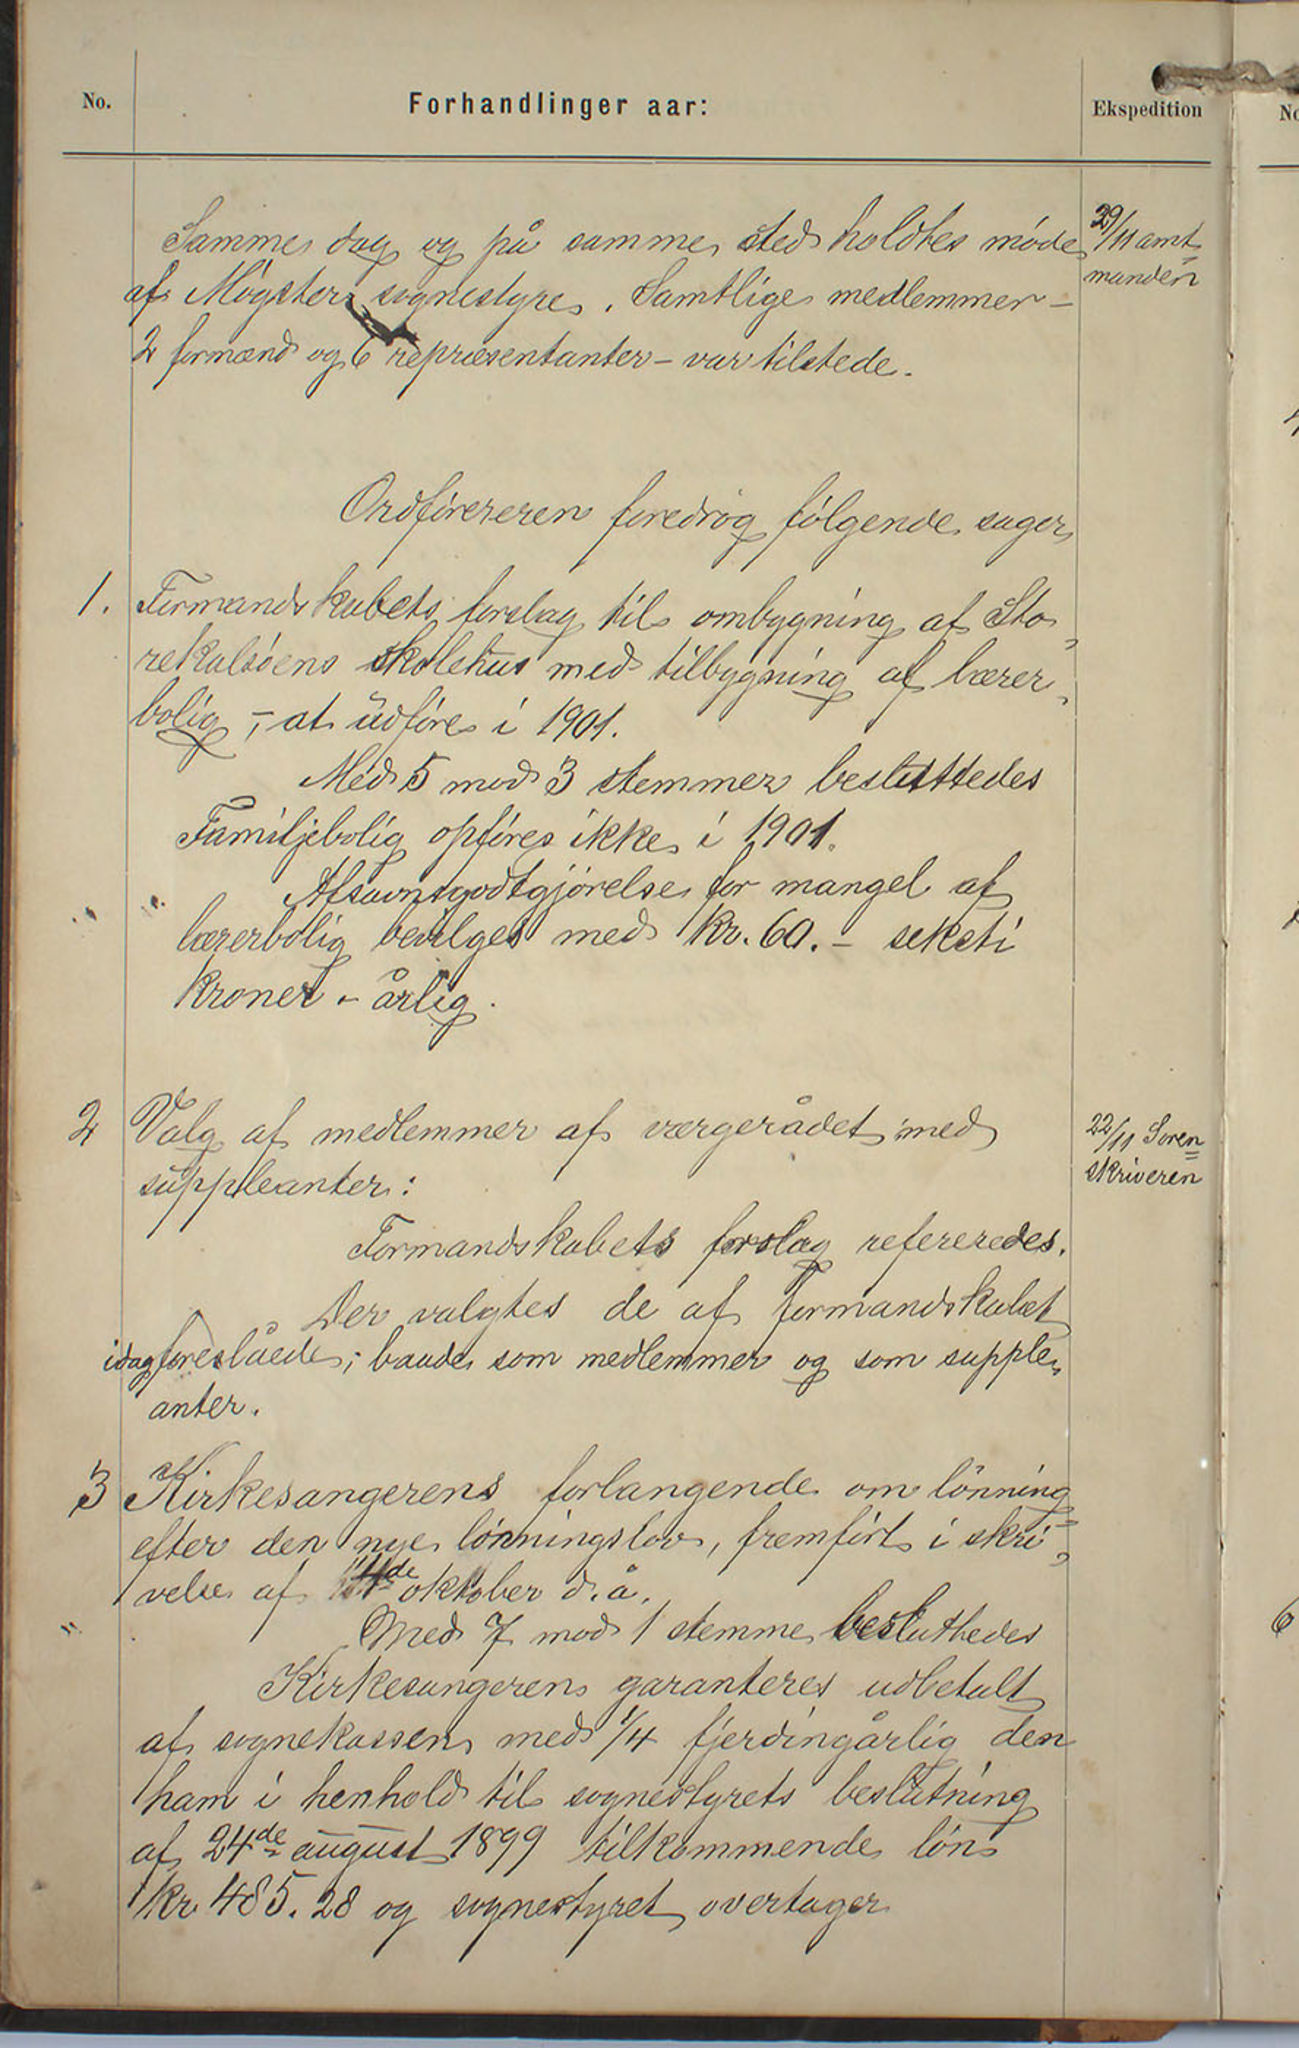 No.
Forhandlinger aar:
Ekspedition
No
Samme dag og på samme sted holdtes møde
af Møgster sognestyre. Samtlige medlemmer –
2 formænd og 6 repræsentanter – var tilstede.
29/11 amt=
manden
Ordføreren foredrog følgende sager
1. Formandskabets forslag til ombygning af Sto„
rekalsøens skolehus med tilbygning af lærer„
bolig, – at udføre i 1901.
Med 5 mod 3 stemmer besluttedes
Familjebolig opføres ikke i 1901.
Afsavnsgodtgjørelse for mangel af
lærerbolig bevilges med kr. 60. – seksti
kroner – årlig.
2 Valg af medlemmer af værgerådet med
suppleanter:
22/11 Soren=
skriveren
Formandskabets forslag refereredes.
Der valgtes de af formandskabet
idag foreslåede; baade som medlemmer og som supple„
anter.
3 Kirkesangerens forlangende om lønning
efter den nye lønningslov, fremført i skri„
velse af 14de oktober d. å.
Med 7 mod 1 stemme besluttedes
Kirkesangeren garanteres udbetalt
af sognekassen med 1/4 fjerdingårlig den
ham i henhold til sognestyrets beslutning
af 24de august 1899 tilkommende løn
kr. 485.28 og sognestyret overtager
6